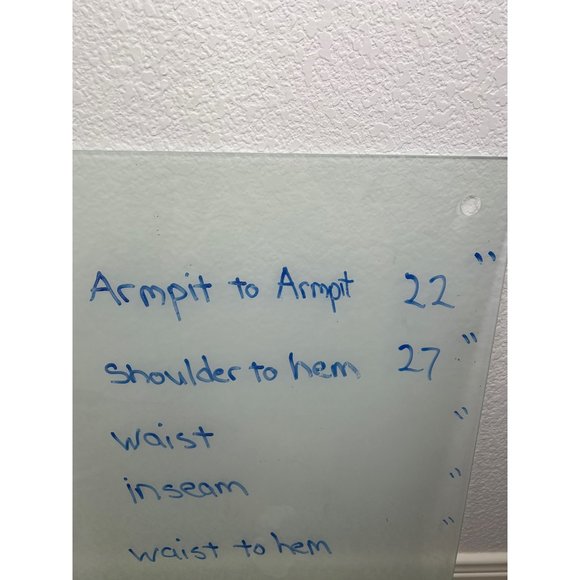 Armpit to Armpit 22"
Shoulder to hem 27"
waist "
inseam "
waist to hem "